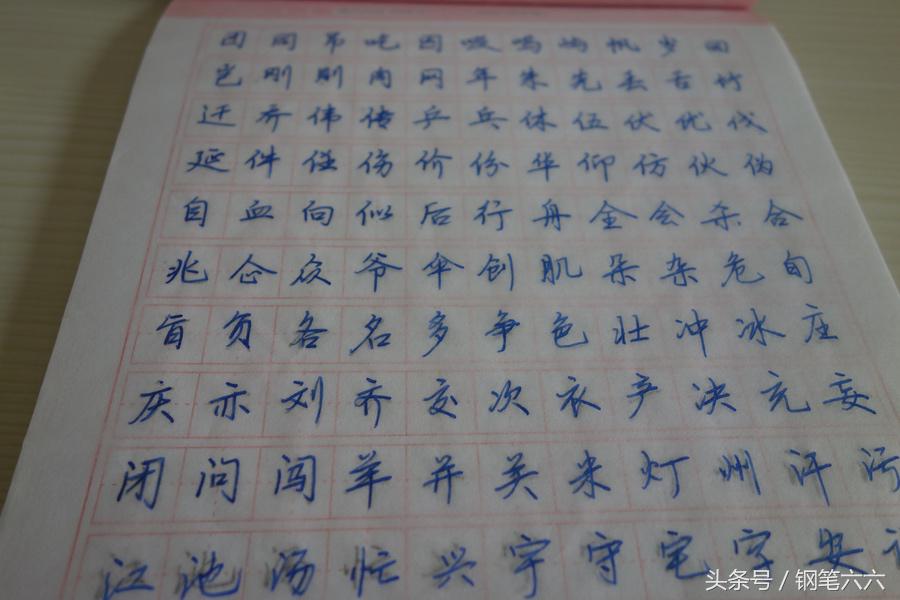 团 同 吊 吃 因 吸 吗 屿 帆 岁 回
岂 刚 则 肉 网 年 朱 先 丢 舌 竹
迁 乔 伟 传 乒 乓 休 伍 伏 优 伐
延 件 任 伤 价 份 华 仰 仿 伙 伪
自 血 向 似 后 行 舟 全 会 杀 合
兆 企 众 爷 伞 创 肌 朵 杂 危 旬
旨 负 各 名 多 争 色 壮 冲 冰 庄
庆 亦 刘 齐 交 次 衣 产 决 充 妄
闭 问 闯 羊 并 关 米 灯 州 汗 污
江 池 汤 忙 兴 宇 守 宅 字 安
头条号 / 钢笔六六